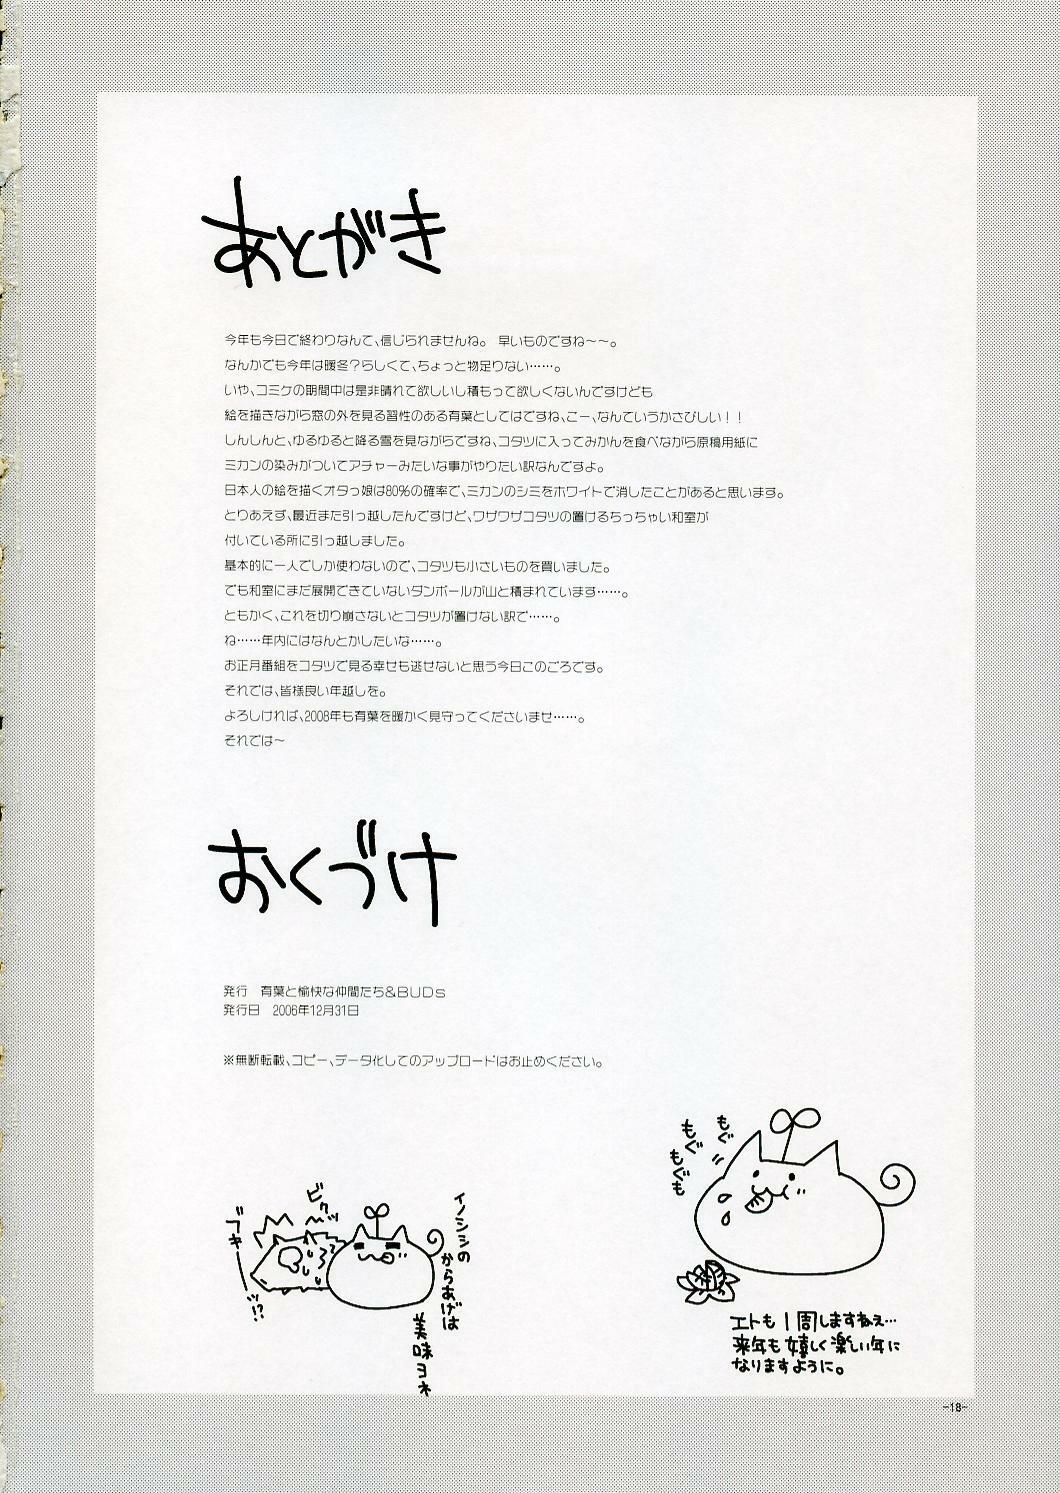 あとがき
今年も今日で終わりなんて、信じられませんね。 早いものですね～～。
なんかでも今年は暖冬？らしくて、ちょっと物足りない……。
いや、コミケの期間中は是非晴れて欲しいし積もって欲しくないんですけども
絵を描きながら窓の外を見る習性のある有葉としてはですね、こー、なんていうかさびしい！！
しんしんと、ゆるゆると降る雪を見ながらですね、コタツに入ってみかんを食べながら原稿用紙に
ミカンの染みがついてアチャーみたいな事がやりたい訳なんですよ。
日本人の絵を描くオタっ娘は80％の確率で、ミカンのシミをホワイトで消したことがあると思います。
とりあえず、最近また引っ越したんですけど、ワザワザコタツの置けるちっちゃい和室が
付いている所に引っ越しました。
基本的に一人でしか使わないので、コタツも小さいものを買いました。
でも和室にまだ展開できていないダンボールが山と積まれています……。
ともかく、これを切り崩さないとコタツが置けない訳で……。
ね……年内にはなんとかしたいな……。
お正月番組をコタツで見る幸せも逃せないと思う今日このごろです。
それでは、皆様良い年越しを。
よろしければ、2008年も有葉を暖かく見守ってくださいませ……。
それでは～
おくづけ
発行 有葉と愉快な仲間たち＆BUDs
発行日 2006年12月31日
※無断転載、コピー、データ化してのアップロードはお止めください。
もぐ
もぐ
もぐも
エトも1周しますねぇ…
来年も嬉しく楽しい年に
なりますように。
イノシシの
からあげは
美味ヨネ
ビクッ
ブキーッ!?
-18-